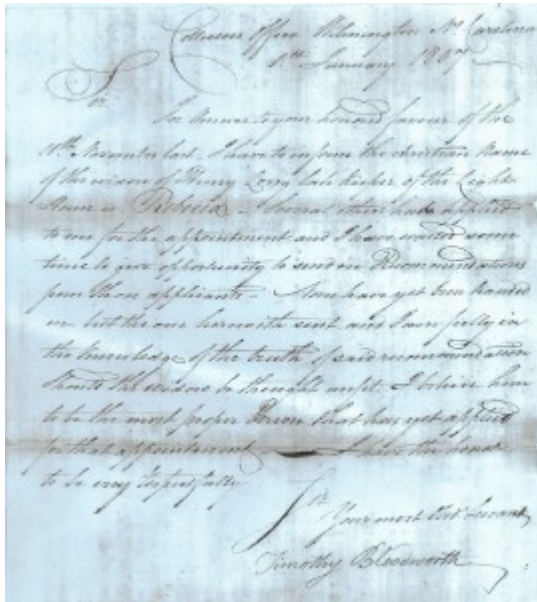 Collectors Office Wilmington No. Carolina
January 1807
Sir
In Answer to your honord favour of the
10th November last. I have to inform the christian Name
of the widow of Henry Long late keeper of the Light
House is Rebecka. Several others have applied
to me for the appointment and I have waited some
time to give opportunity to send in Recommendations
from those applicants. None have yet been handed
in but the one herewith sent and I am fully in
the knowledge of the truth of said recommendation
should the widow be thought unfit. I believe him
to be the most proper Person that has yet applied
for that appointment I have the honor
to be very respectfully
Sir
Your most Obt Servant
Timothy Bloodworth